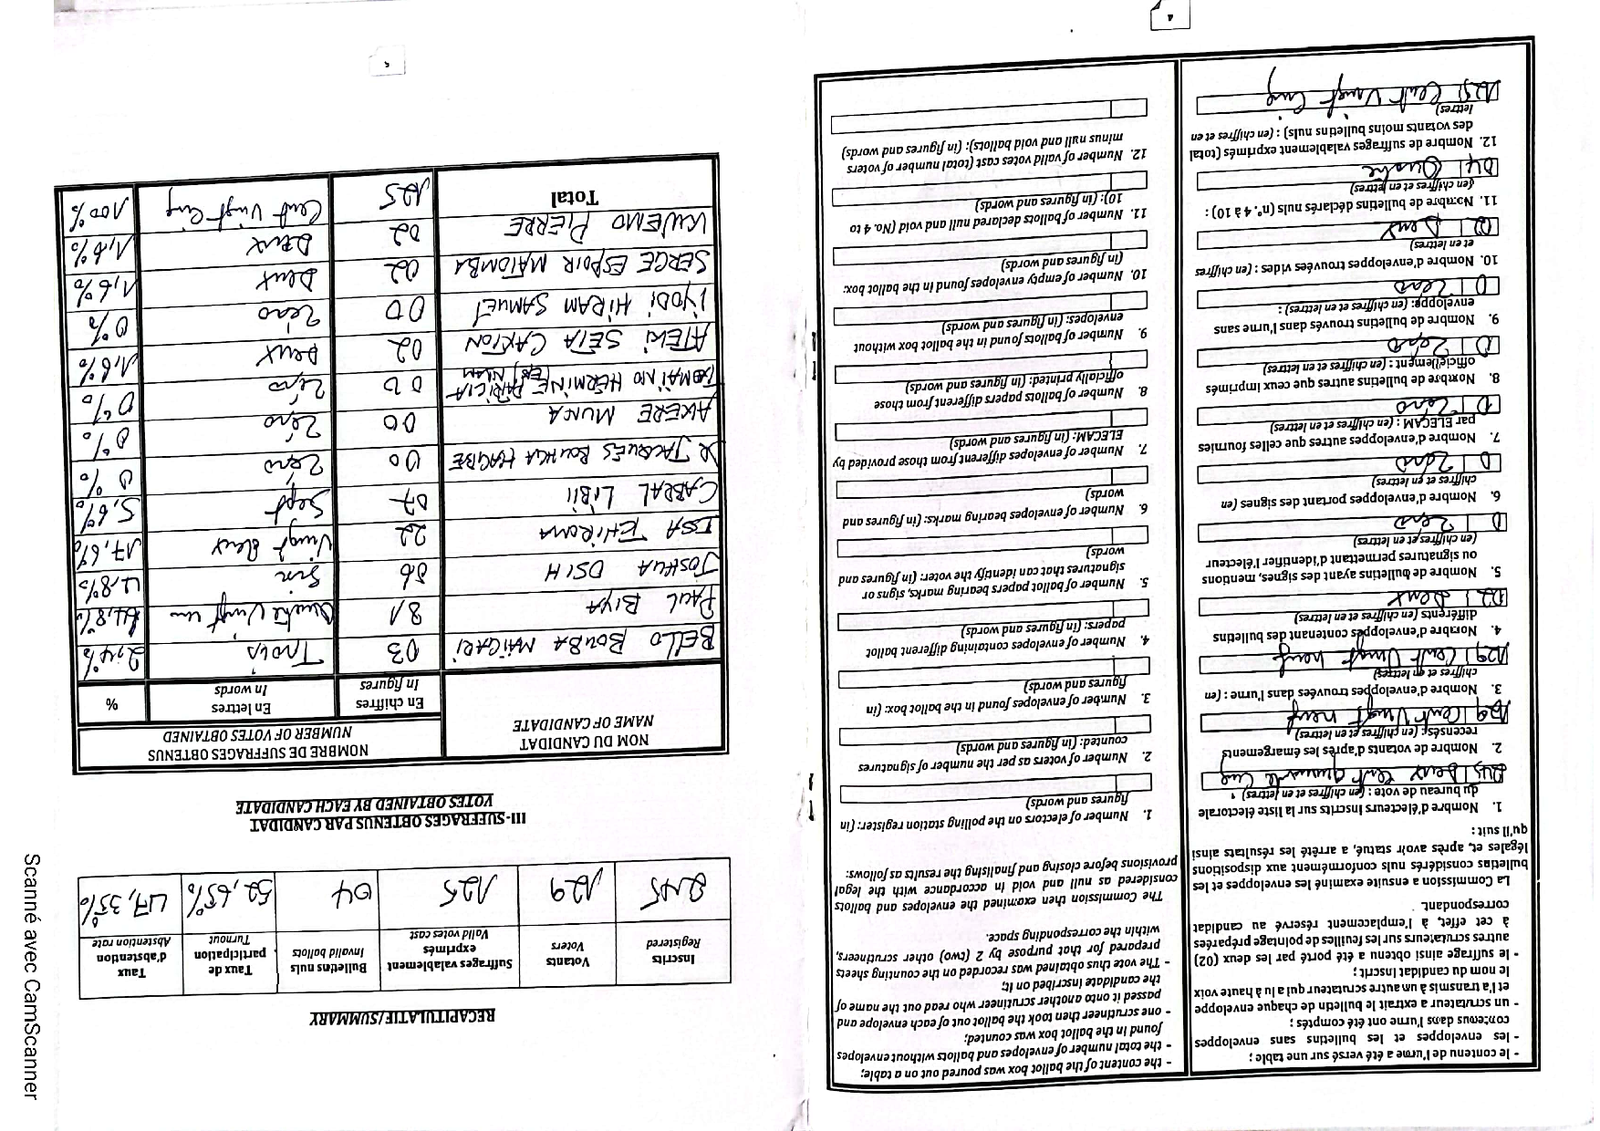 4
- le contenu de l'urne a été versé sur une table ;
- les enveloppes et les bulletins sans enveloppes
contenus dans l'urne ont été comptés ;
- un scrutateur a extrait le bulletin de chaque enveloppe
et l'a transmis à un autre scrutateur qui a lu à haute voix
le nom du candidat inscrit ;
- le suffrage ainsi obtenu a été porté par les deux (02)
autres scrutateurs sur les feuilles de pointage préparées
à cet effet, à l'emplacement réservé au candidat
correspondant.
La Commission a ensuite examiné les enveloppes et les
bulletins considérés nuls conformément aux dispositions
légales et, après avoir statué, a arrêté les résultats ainsi
qu'il suit :
1. Nombre d'électeurs inscrits sur la liste électorale
du bureau de vote : (en chiffres et en lettres)
245 Deux cent quarante cinq
2. Nombre de votants d'après les émargements
recensés: (en chiffres et en lettres)
129 Cent Vingt neuf
3. Nombre d'enveloppes trouvées dans l'urne : (en
chiffres et en lettres)
129 Cent Vingt neuf
4. Nombre d'enveloppes contenant des bulletins
différents (en chiffres et en lettres)
02 Deux
5. Nombre de bulletins ayant des signes, mentions
ou signatures permettant d'identifier l'électeur
(en chiffres et en lettres)
0 Zéro
6. Nombre d'enveloppes portant des signes (en
chiffres et en lettres)
0 Zéro
7. Nombre d'enveloppes autres que celles fournies
par ELECAM : (en chiffres et en lettres)
0 Zéro
8. Nombre de bulletins autres que ceux imprimés
officiellement : (en chiffres et en lettres)
0 Zéro
9. Nombre de bulletins trouvés dans l'urne sans
enveloppe: (en chiffres et en lettres) :
0 Zéro
10. Nombre d'enveloppes trouvées vides : (en chiffres
et en lettres)
02 Deux
11. Nombre de bulletins déclarés nuls (n°. 4 à 10) :
(en chiffres et en lettres)
04 Quatre
12. Nombre de suffrages valablement exprimés (total
des votants moins bulletins nuls) : (en chiffres et en
lettres)
125 Cent Vingt Cinq
- the content of the ballot box was poured out on a table;
- the total number of envelopes and ballots without envelopes
found in the ballot box was counted;
- one scrutineer then took the ballot out of each envelope and
passed it onto another scrutineer who read out the name of
the candidate inscribed on it;
- The vote thus obtained was recorded on the counting sheets
prepared for that purpose by 2 (two) other scrutineers,
within the corresponding space.
The Commission then examined the envelopes and ballots
considered as null and void in accordance with the legal
provisions before closing and finalising the results as follows:
1. Number of electors on the polling station register: (in
figures and words)
2. Number of voters as per the number of signatures
counted: (in figures and words)
3. Number of envelopes found in the ballot box: (in
figures and words)
4. Number of envelopes containing different ballot
papers: (in figures and words)
5. Number of ballot papers bearing marks, signs or
signatures that can identify the voter: (in figures and
words)
6. Number of envelopes bearing marks: (in figures and
words)
7. Number of envelopes different from those provided by
ELECAM: (in figures and words)
8. Number of ballots papers different from those
officially printed: (in figures and words)
9. Number of ballots found in the ballot box without
envelopes: (in figures and words)
10. Number of empty envelopes found in the ballot box:
(in figures and words)
11. Number of ballots declared null and void (No. 4 to
10): (in figures and words)
12. Number of valid votes cast (total number of voters
minus null and void ballots): (in figures and words)
5
RECAPITULATIF/SUMMARY
Inscrits Registered | Votants Voters | Suffrages valablement exprimés Valid votes cast | Bulletins nuls Invalid ballots | Taux de participation Turnout | Taux d'abstention Abstention rate
245 | 129 | 125 | 04 | 52,65% | 47,35%
III- SUFFRAGES OBTENUS PAR CANDIDAT
VOTES OBTAINED BY EACH CANDIDATE
NOM DU CANDIDAT NAME OF CANDIDATE | NOMBRE DE SUFFRAGES OBTENUS NUMBER OF VOTES OBTAINED
En chiffres In figures | En lettres In words | %
BELLO BOUBA MAÏGARI | 03 | Trois | 2,4%
PAUL BIYA | 81 | Quatre Vingt un | 64,8%
JOSHUA OSIH | 06 | Six | 4,8%
ISSA TCHIROMA | 22 | Vingt deux | 17,6%
CABRAL LIBII | 07 | Sept | 5,6%
Dr JACQUES BOUGHA HAGBE | 00 | Zéro | 0%
AKERE MUNA | 00 | Zéro | 0%
TOMAÏNO HERMINE PATRICIA | 00 | Zéro | 0%
ATEKI SETA CAXTON | 02 | Deux | 1,6%
IYODI HIRAM SAMUEL | 00 | Zéro | 0%
SERGE ESPOIR MATOMBA | 02 | Deux | 1,6%
KWEMO PIERRE | 02 | Deux | 1,6%
Total | 125 | Cent Vingt Cinq | 100%
Scanné avec CamScanner